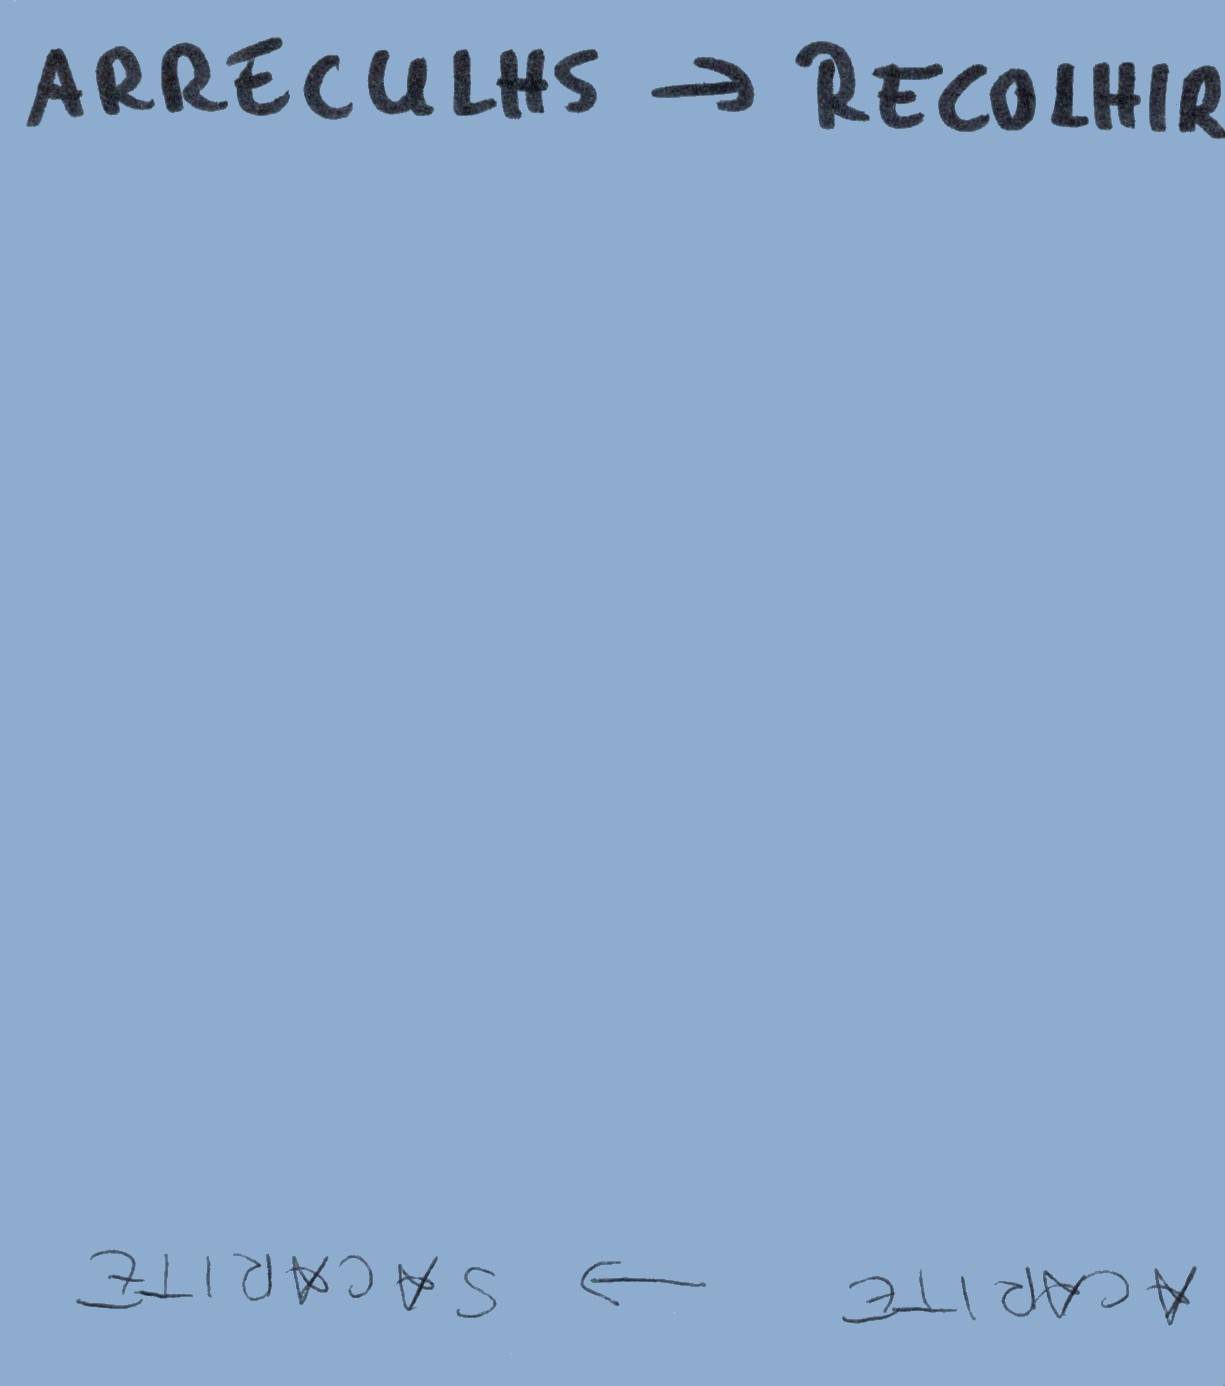 ARRECULHS → RECOLHIR
ACARITE → SACARITE